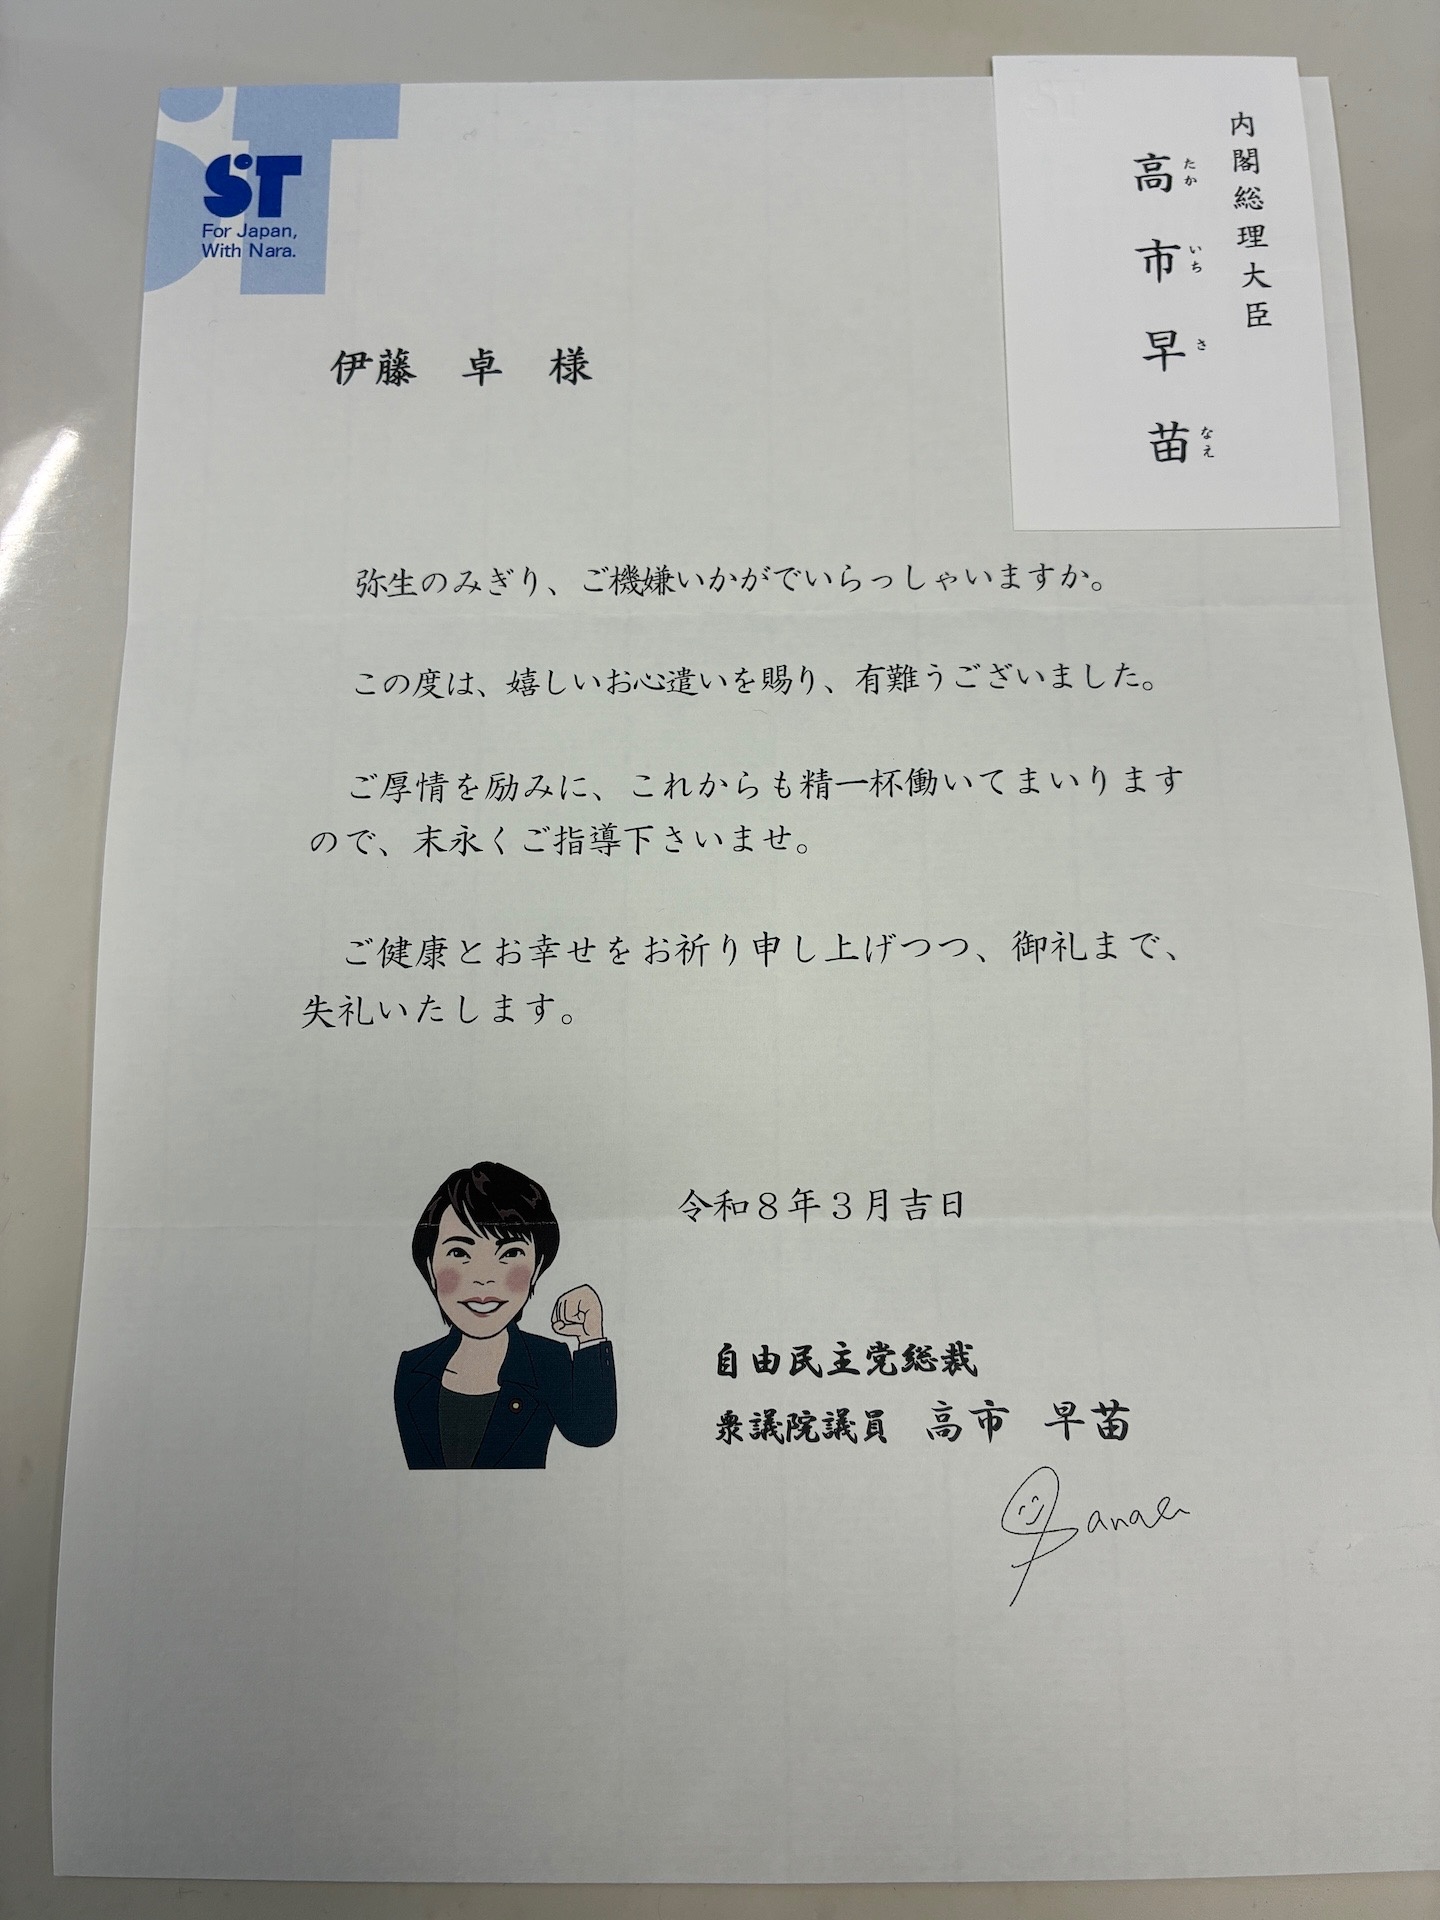 ST
For Japan,
With Nara.
内閣総理大臣
高市早苗
たかいちさなえ
伊藤　卓　様
弥生のみぎり、ご機嫌いかがでいらっしゃいますか。
この度は、嬉しいお心遣いを賜り、有難うございました。
ご厚情を励みに、これからも精一杯働いてまいります
ので、末永くご指導下さいませ。
ご健康とお幸せをお祈り申し上げつつ、御礼まで、
失礼いたします。
令和８年３月吉日
自由民主党総裁
衆議院議員　高市　早苗
Sanae